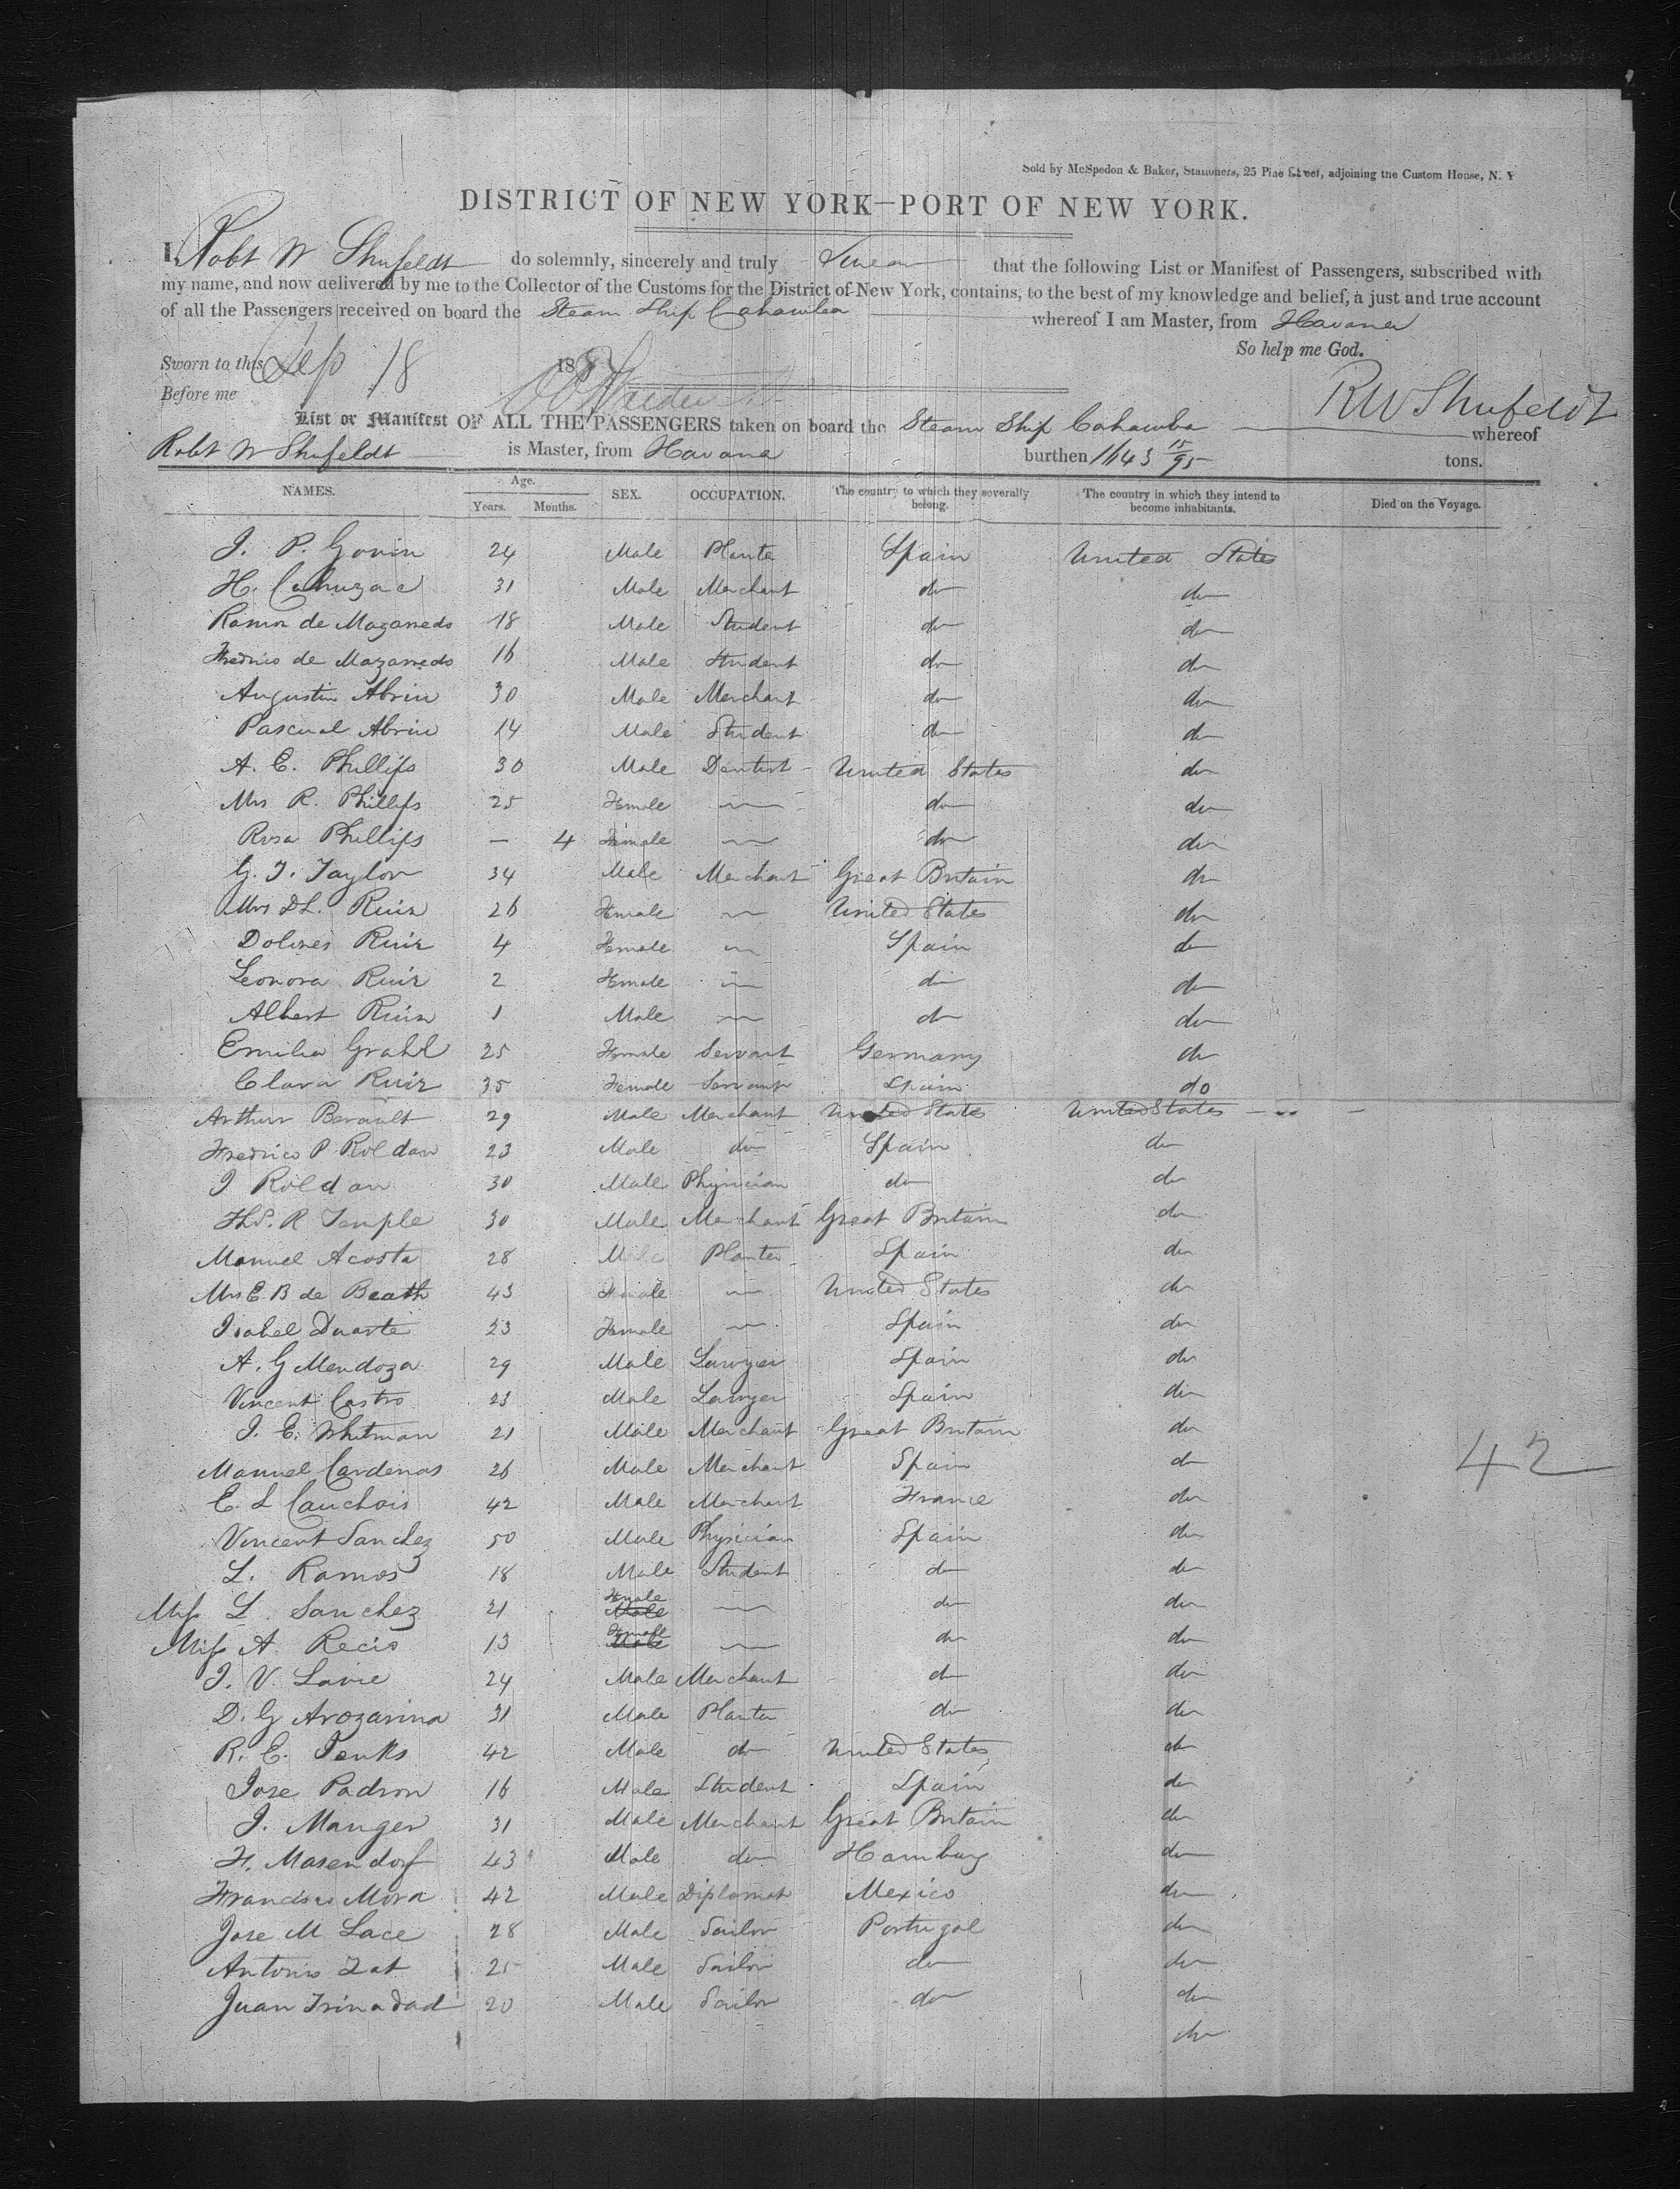 Sold by McSpedon & Baker, Stationers, 25 Pine Street, adjoining the Custom House, N. Y
DISTRICT OF NEW YORK—PORT OF NEW YORK.
I, Robt W Shufeldt do solemnly, sincerely and truly Swear that the following List or Manifest of Passengers, subscribed with
my name, and now delivered by me to the Collector of the Customs for the District of New York, contains, to the best of my knowledge and belief, a just and true account
of all the Passengers received on board the Steam Ship Cahawba whereof I am Master, from Havana
So help me God.
Sworn to this Sep 18 185
Before me
RW Shufeldt
List or Manifest OF ALL THE PASSENGERS taken on board the Steam Ship Cahawba whereof
Robt W Shufeldt is Master, from Havana burthen 1643 15/95 tons.
NAMES. Age. Years. Months. SEX. OCCUPATION. The country to which they severally belong. The country in which they intend to become inhabitants. Died on the Voyage.
J. P. Govin 24 Male Planter Spain United States
H. Cahuzac 31 Male Merchant do do
Ramon de Mazarredo 18 Male Student do do
Fredrico de Mazarredo 16 Male Student do do
Augustin Abriu 30 Male Merchant do do
Pascual Abriu 14 Male Student do do
A. E. Phillips 30 Male Dentist United States do
Mrs R. Phillips 25 Female — do do
Rosa Phillips — 4 Female — do do
G. J. Taylor 34 Male Merchant Great Britain do
Mrs D L. Ruiz 26 Female — United States do
Dolores Ruiz 4 Female — Spain do
Leonora Ruiz 2 Female — do do
Albert Ruiz 1 Male — do do
Emilia Grahl 25 Female Servant Germany do
Clara Ruiz 35 Female Servant Spain do
Arthur Berault 29 Male Merchant United States United States
Fredrico P Roldan 23 Male do Spain do
J Roldan 30 Male Physician do do
Thos. R Temple 30 Male Merchant Great Britain do
Manuel Acosta 28 Male Planter Spain do
Mrs E B de Beath 43 Female — United States do
Isabel Duarte 23 Female — Spain do
A. G Mendoza 29 Male Lawyer Spain do
Vincent Castro 23 Male Lawyer Spain do
J. E. Whitman 21 Male Merchant Great Britain do
Manuel Cardenas 26 Male Merchant Spain do
42
E. L Cauchois 42 Male Merchant France do
Vincent Sanchez 50 Male Physician Spain do
L. Ramos 18 Male Student do do
Miss L. Sanchez 21 Female Male — do do
Miss A Recio 13 Female Male — do do
J. V. Lavie 24 Male Merchant do do
D. G Arozarina 31 Male Planter do do
R. E. Jenks 42 Male do United States do
Jose Padron 16 Male Student Spain do
J. Manger 31 Male Merchant Great Britain do
H. Masendorf 43 Male do Hamburg do
Francisco Mora 42 Male Diplomat Mexico do
Jose M Lace 28 Male Sailor Portugal do
Antonio Zat 25 Male Sailor do do
Juan Trinadad 20 Male Sailor do do
do